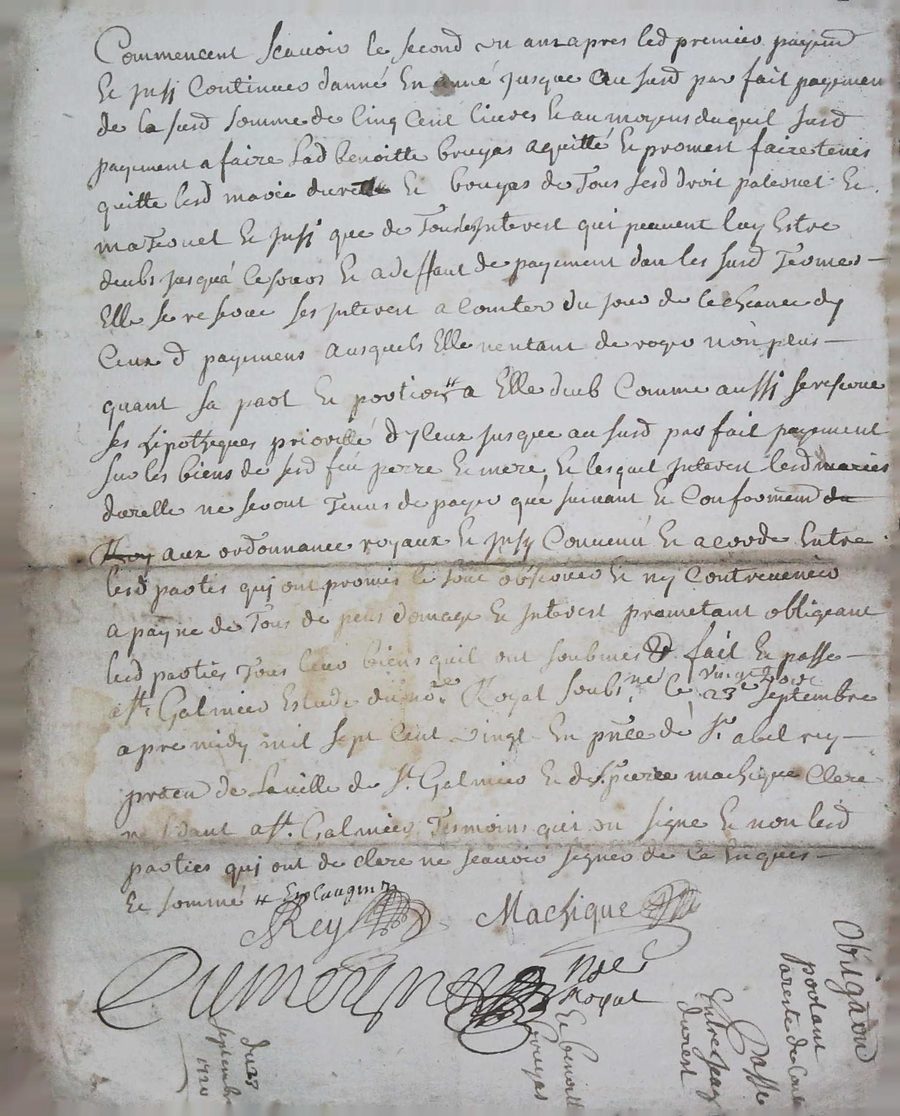 Commencent scavoir le second un an apres led premier payemt
Et jnssi continuer danné en anné jusque au susd parfait payement
de la susd somme de Cinq Cent livres Et au moyens duquil susd
payment a faire Lad benoitte bruyas a quitté Et promest faire tenir
quitte lesd mariés durelle Et bruyas de tous sesd droit paternel Et
maternel Et jnssi que de tous interest qui peuvent luy Estre
deubs jusquà Ce jour Et a deffaut de payement dans les susd termes
Elle se reserve ses jnterest a Comter du jour de leCheance dy
Ceux d payemens ausquels Elle nentant deroger non plus
quant sa part Et portion # a Elle deub Comme aussi se reserve
ses Lipotheques priorité dyCeux jusque au susd parfait payement
sur les biens de sesd feu perre Et mere, Et lesquel jnterest lesd mariés
durelle ne seront tenus de payer que suivant Et Conformement
aux ordonnance royaux Et jnsy Convenû Et acorde Entre
lesd parties qui ont promis le tout observer Et ny Contrevenir
a payne de tous depens domage Et jnterest prometant obligeant
lesd parties tous leur biens quil ont soubmis & fait Et passe
a St Galmier Estude du nore Royal soubsne le vingt trois 23e septembre
apre midy mil sept Cent vingt En pnce de Sr abel rey
praen de La ville de St Galmier Et de Sr pierre machique Clerc
residant a St Galmier tesmoins qui on signe Et non lesd
parties qui ont de clere ne scavoir signer de Ce Enques
Et sommé #
Rey Machique
nore
Royal
Obligaon
portant
passe
Entre
durest
Et benoitt
bruyas
du 23
septembre
1720